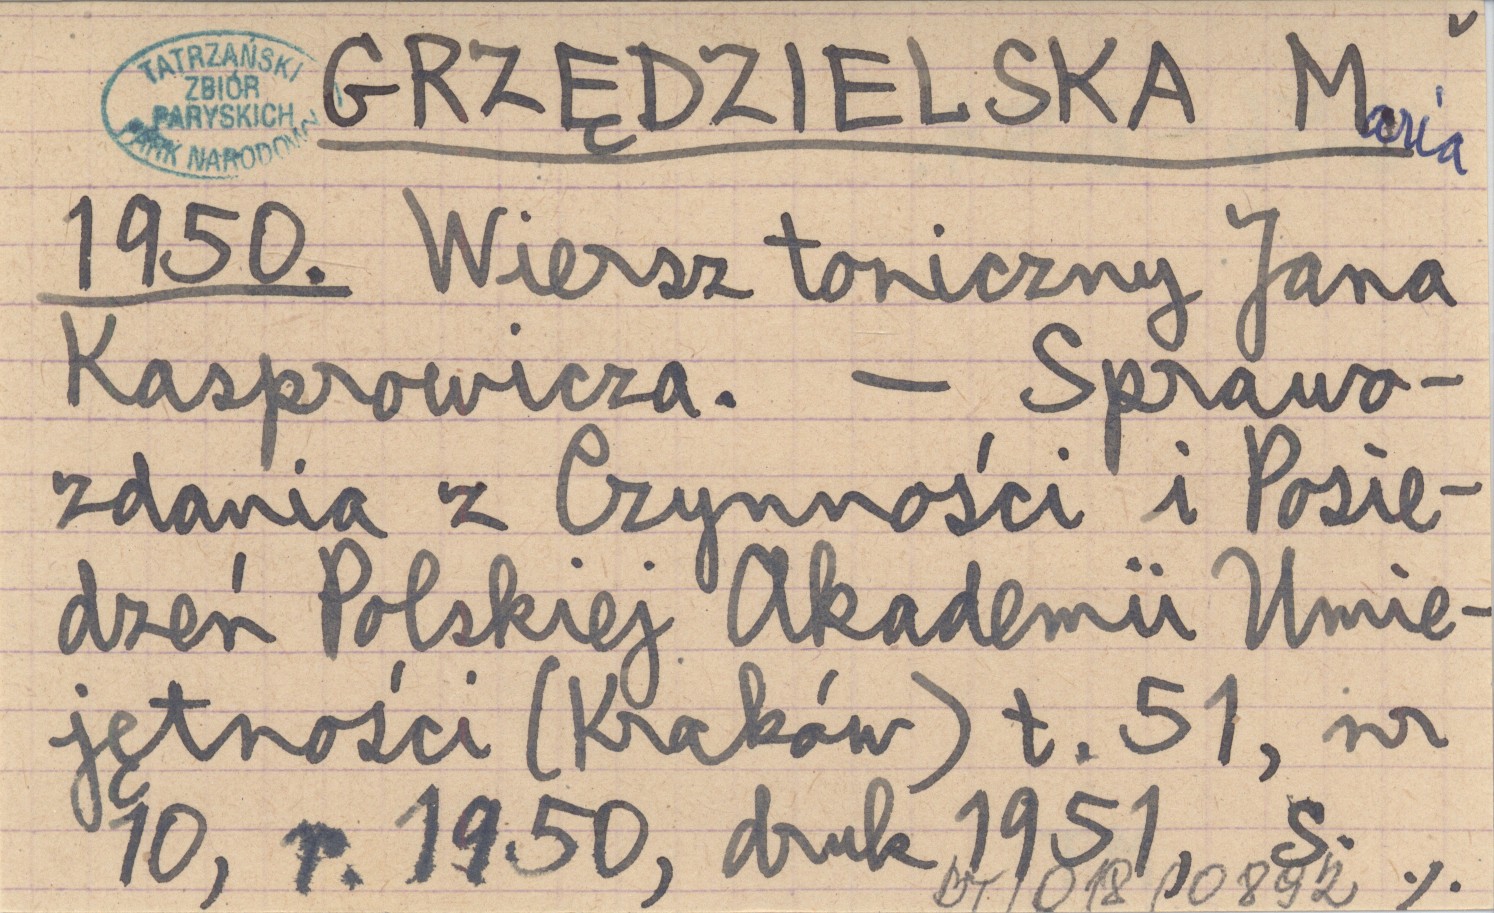 TATRZAŃSKI
ZBIÓR
PARYSKICH
PARK NARODOWY
GRZĘDZIELSKA Maria
1950. Wiersz toniczny Jana
Kasprowicza. — Sprawo-
zdania z Czynności i Posie-
dzeń Polskiej Akademii Umie-
jętności (Kraków) t. 51, nr
10, r. 1950, druk 1951, s. ./.
DT/018/0892